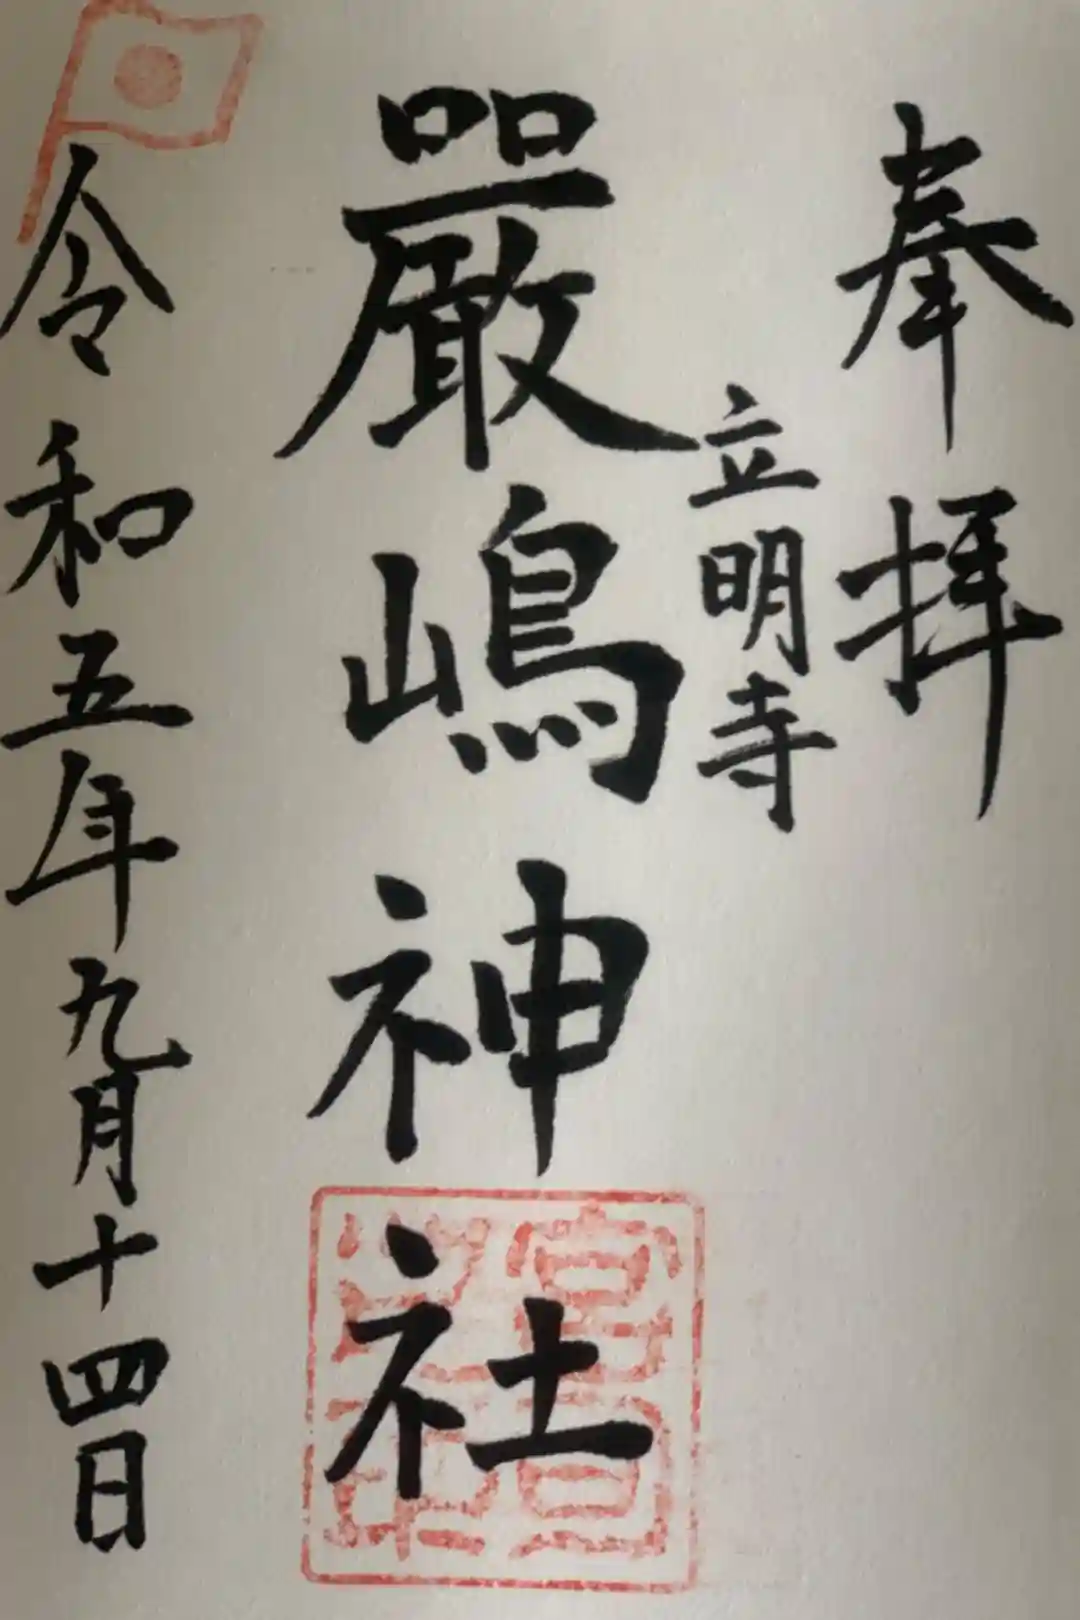 奉拝
立明寺
嚴嶋神社
令和五年九月十四日